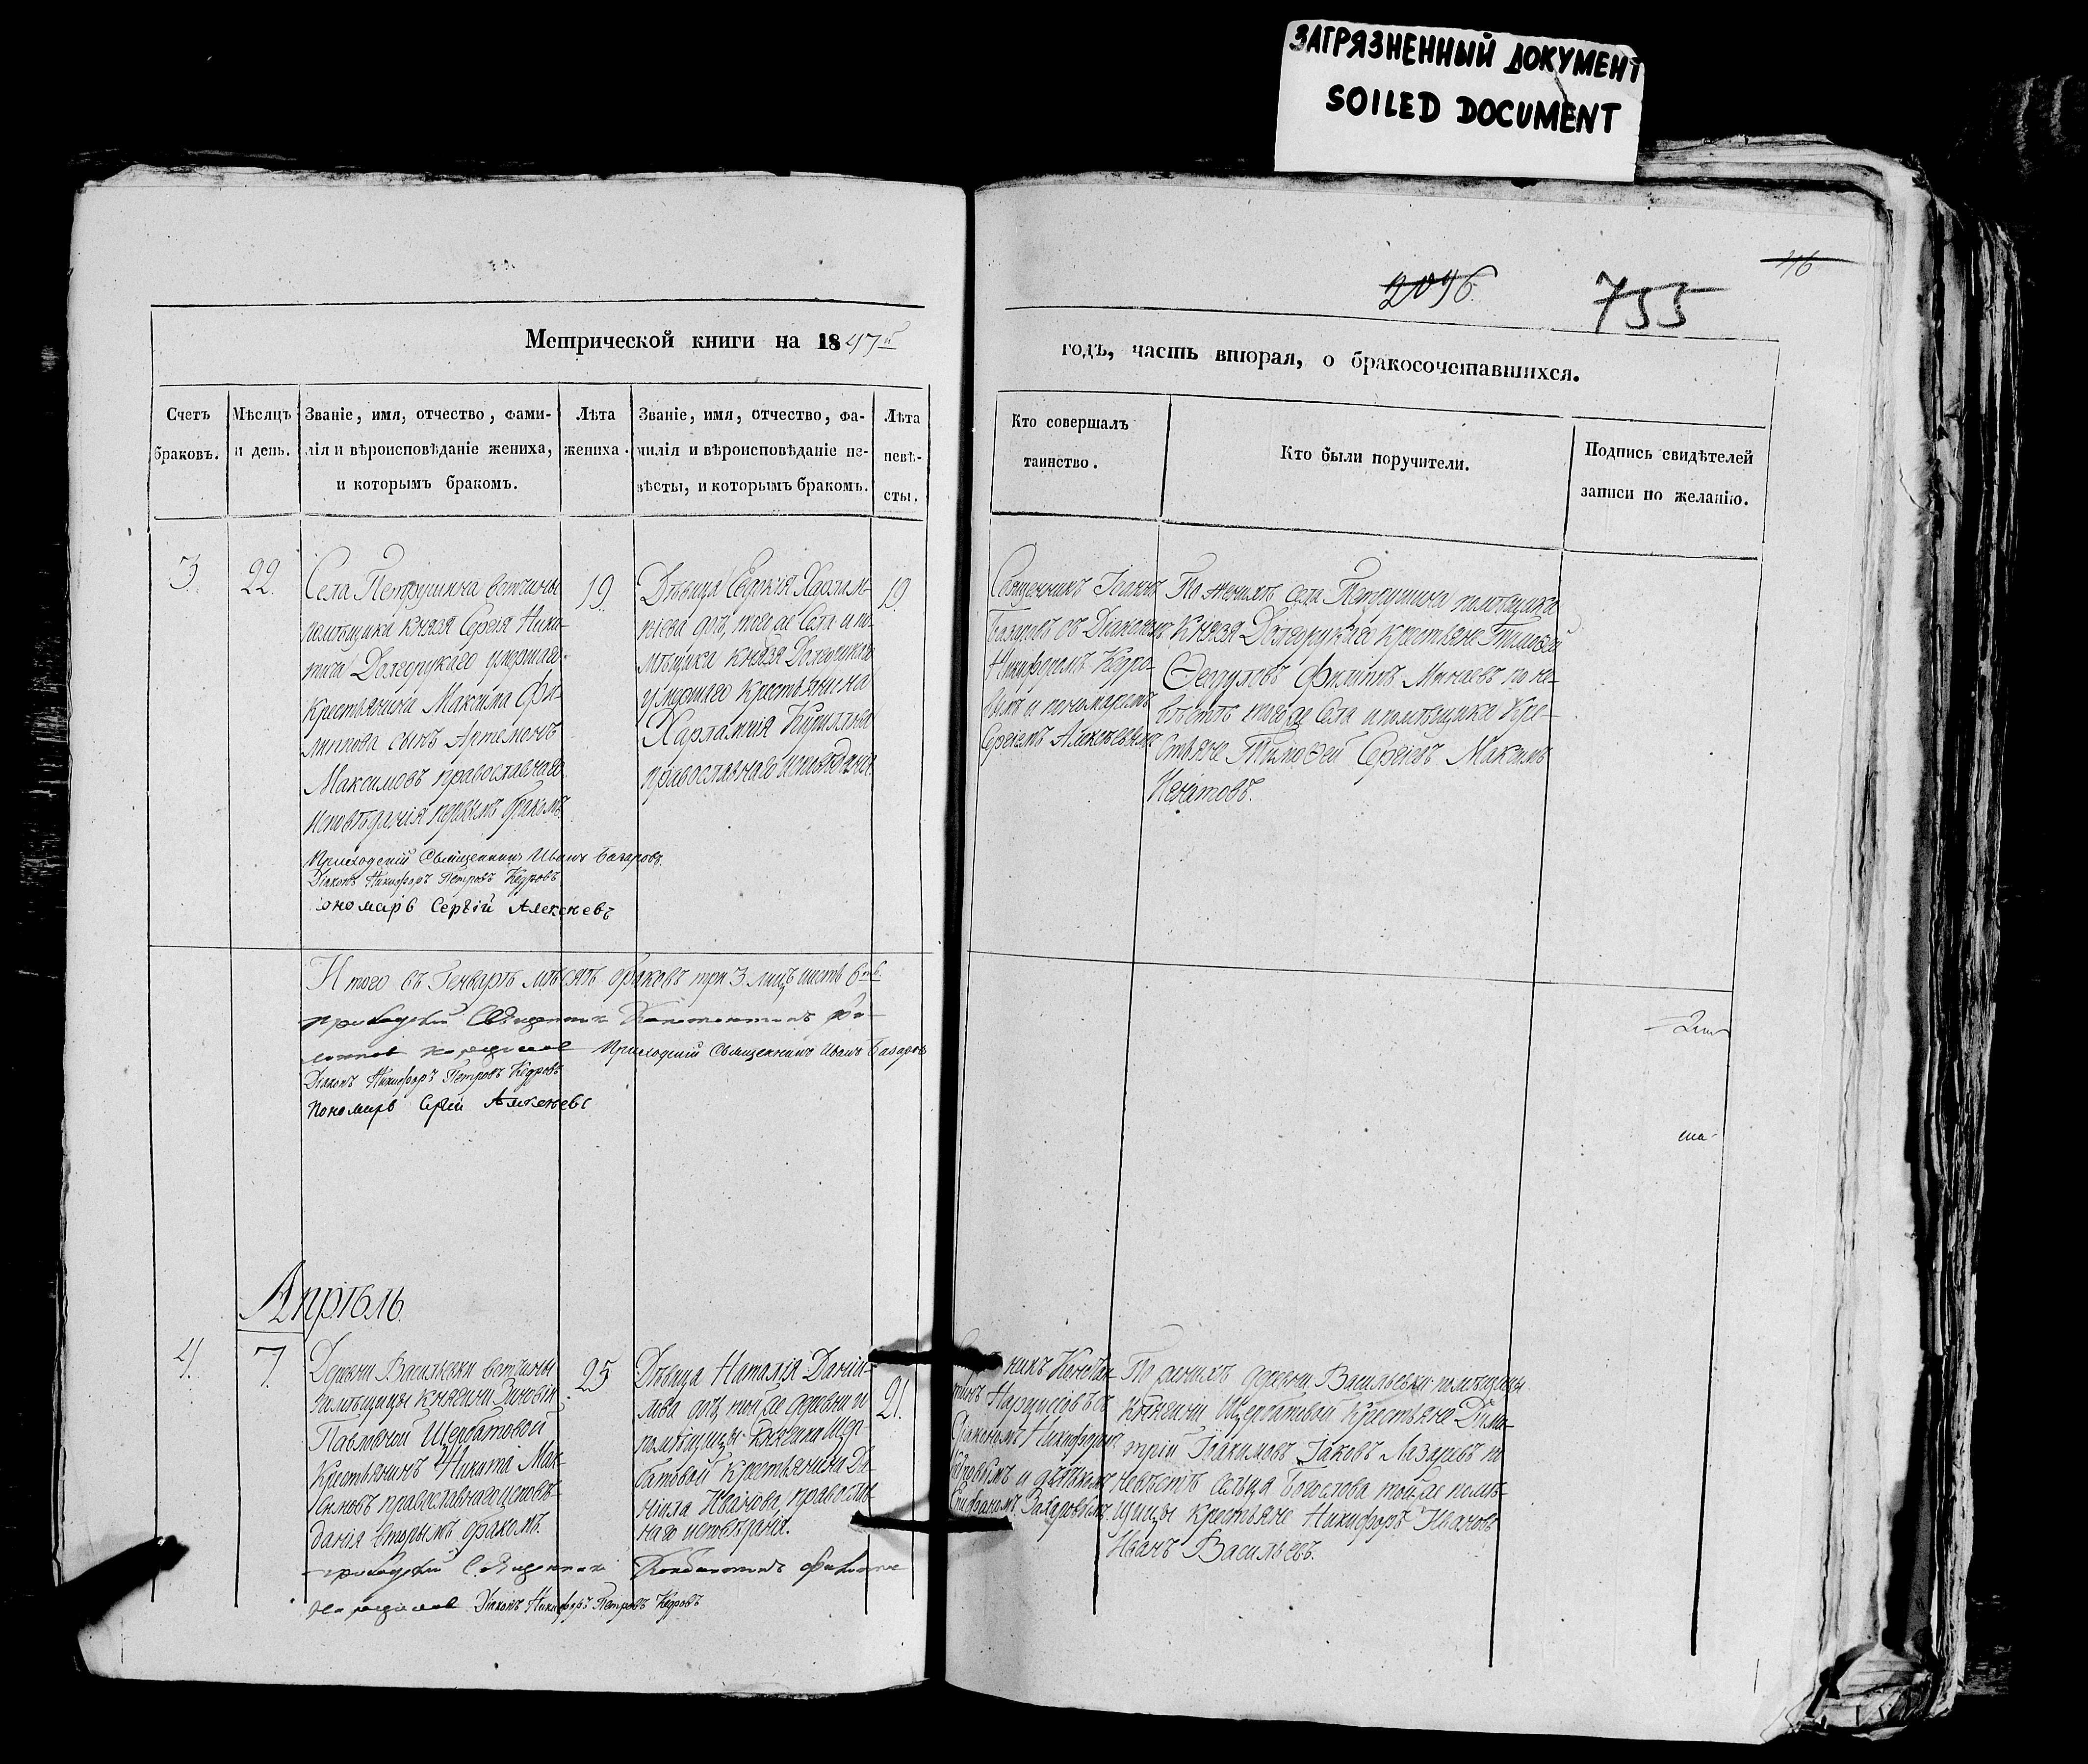 ЗАГРЯЗНЕННЫЙ ДОКУМЕНТ
SOILED DOCUMENT
2096
755
46
Метрической книги на 1847й
годъ, часть вторая, о бракосочетавшихся.
Счетъ
браковъ.
Мѣсяцъ
и день.
Званіе, имя, отчество, фами-
лія и вѣроисповѣданіе жениха,
и которымъ бракомъ.
Лѣта
жениха.
Званіе, имя, отчество, фа-
милія и вѣроисповѣданіе не-
вѣсты, и которымъ бракомъ.
Лѣта
невѣ-
сты.
Кто совершалъ
таинство.
Кто были поручители.
Подпись свидѣтелей
записи по желанію.
3.
22.
Села Петрушина вотчины
помѣщика Князя Сергія Ники-
тича Долгорукаго умершаго
крестьянина Максима Фи-
липпова сынъ Артемонъ
Максимовъ православнаго
исповѣданія первымъ бракомъ.
19.
Дѣвица Евдокія Харлам-
піева дщ, той же Села и по-
мѣщика Князя Долгорукаго
умершаго Крестьянина
Харлампія Кириллова
православнаго исповѣданія.
19.
Священникъ Іоаннъ
Базаровъ съ Діакономъ
Никифоромъ Кедро-
вымъ и пономаремъ
Сергіемъ Алексѣевымъ
По женихѣ Села Петрушина помѣщика
Князя Долгорукаго Крестьяне Тимоѳей
Ѳедуловъ Филиппъ Минаевъ по не-
вѣстѣ того же Села и помѣщика Кре-
стьяне Тимоѳей Сергіевъ Максимъ
Игнатовъ.
Приходскій Священникъ Иванъ Базаровъ.
Діаконъ Никифоръ Петровъ Кедровъ
пономарь Сергій Алексѣевъ
Итого въ Генварѣ мѣсяцѣ браковъ три 3. лицъ шесть 6ть.
Приходскій Священникъ Константинъ
Приходскій Священникъ Иванъ Базаровъ
Діаконъ Никифоръ Петровъ Кедровъ
Пономарь Сергій Алексѣевъ
Апрѣль.
4.
7.
Деревни Васильевки вотчины
помѣщицы Княгини Зиновіи
Павловной Щербатовой
Крестьянинъ Никита Мак-
симовъ православнаго исповѣ-
данія вторымъ бракомъ.
25
Дѣвица Наталія Даніи-
лова дщ, той же деревни и
помѣщицы Княгини Щер-
батовой Крестьянина Да-
ніила Иванова, православ-
наго исповѣданія.
21.
никъ Констан-
тинъ Нарциссовъ съ
Діакономъ Никифоромъ
Кедровымъ и дьячкомъ
Епифаномъ Захаровымъ.
По женихѣ деревни Васильевки помѣщицы
Княгини Щербатовой Крестьяне Дими-
трій Іоакимовъ Іаковъ Лазаревъ по
невѣстѣ сельца Богослова той же помѣ-
щицы Крестьяне Никифоръ Ивановъ
Иванъ Васильевъ.
Приходскій Священникъ Константинъ
Діаконъ Никифоръ Петровъ Кедровъ